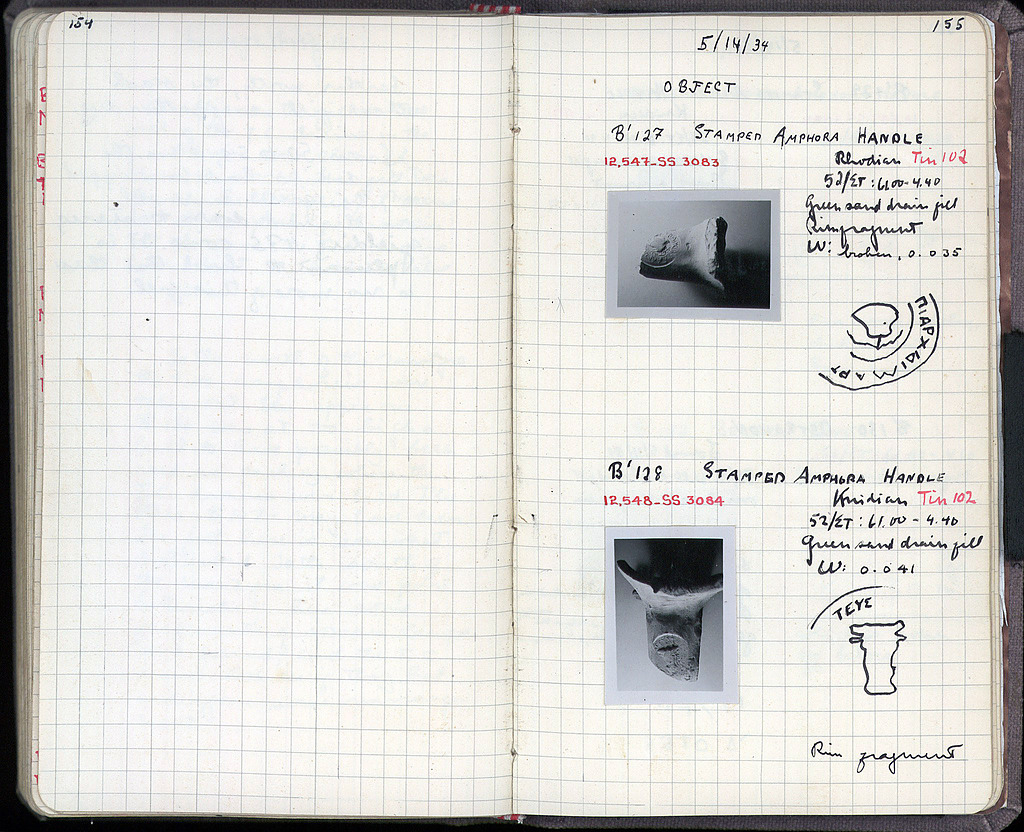 154
155
5/14/34
OBJECT
B'127 STAMPED AMPHORA HANDLE
12,547_SS 3083
Rhodian Tin 102
52/ΣΤ : 61.00-4.40
Green sand drain fill
Rim fragment
W: broken, 0.035
B'128 STAMPED AMPHORA HANDLE
12,548_SS 3084
Knidian Tin 102
52/ΣΤ : 61.00 - 4.40
Green sand drain fill
W: 0.041
ΤΕΥΣ
Rim fragment